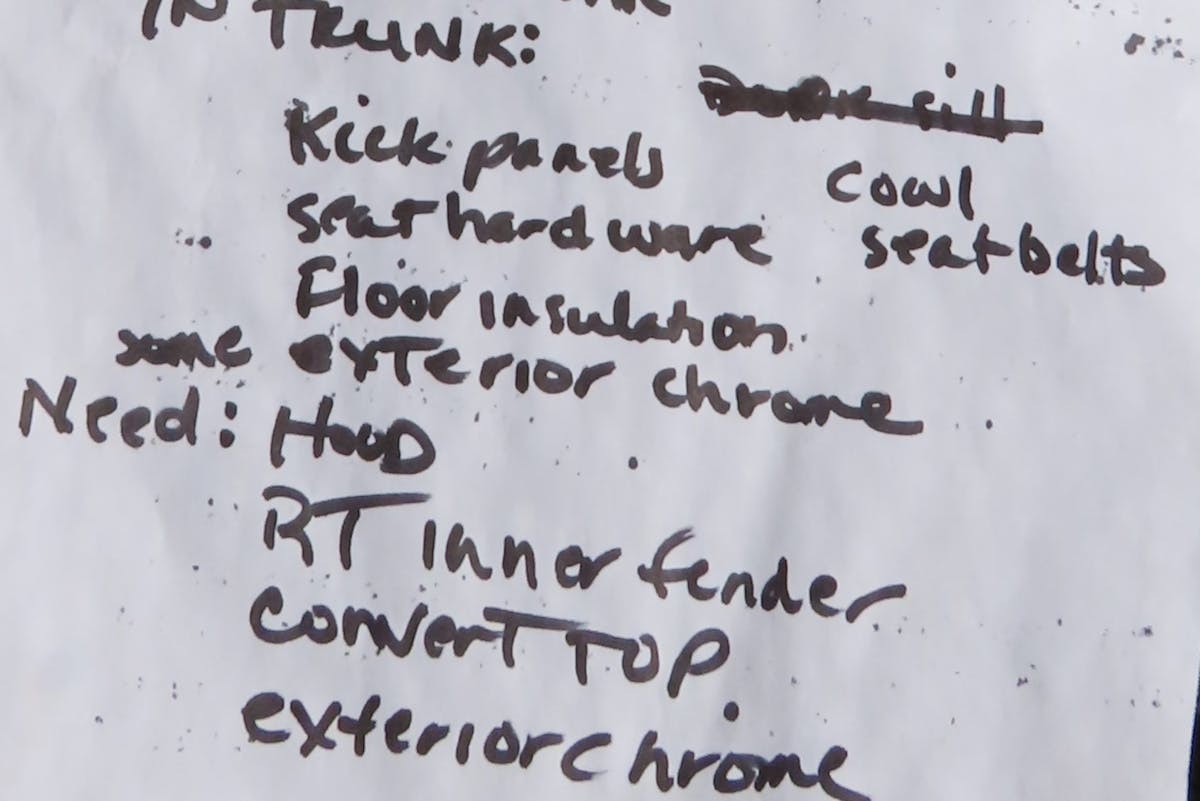 IN TRUNK:
Kick panels
seat hardware
Floor insulation
some exterior chrome
sill
cowl
seatbelts
Need: HOOD
RT inner fender
convert TOP
exterior chrome